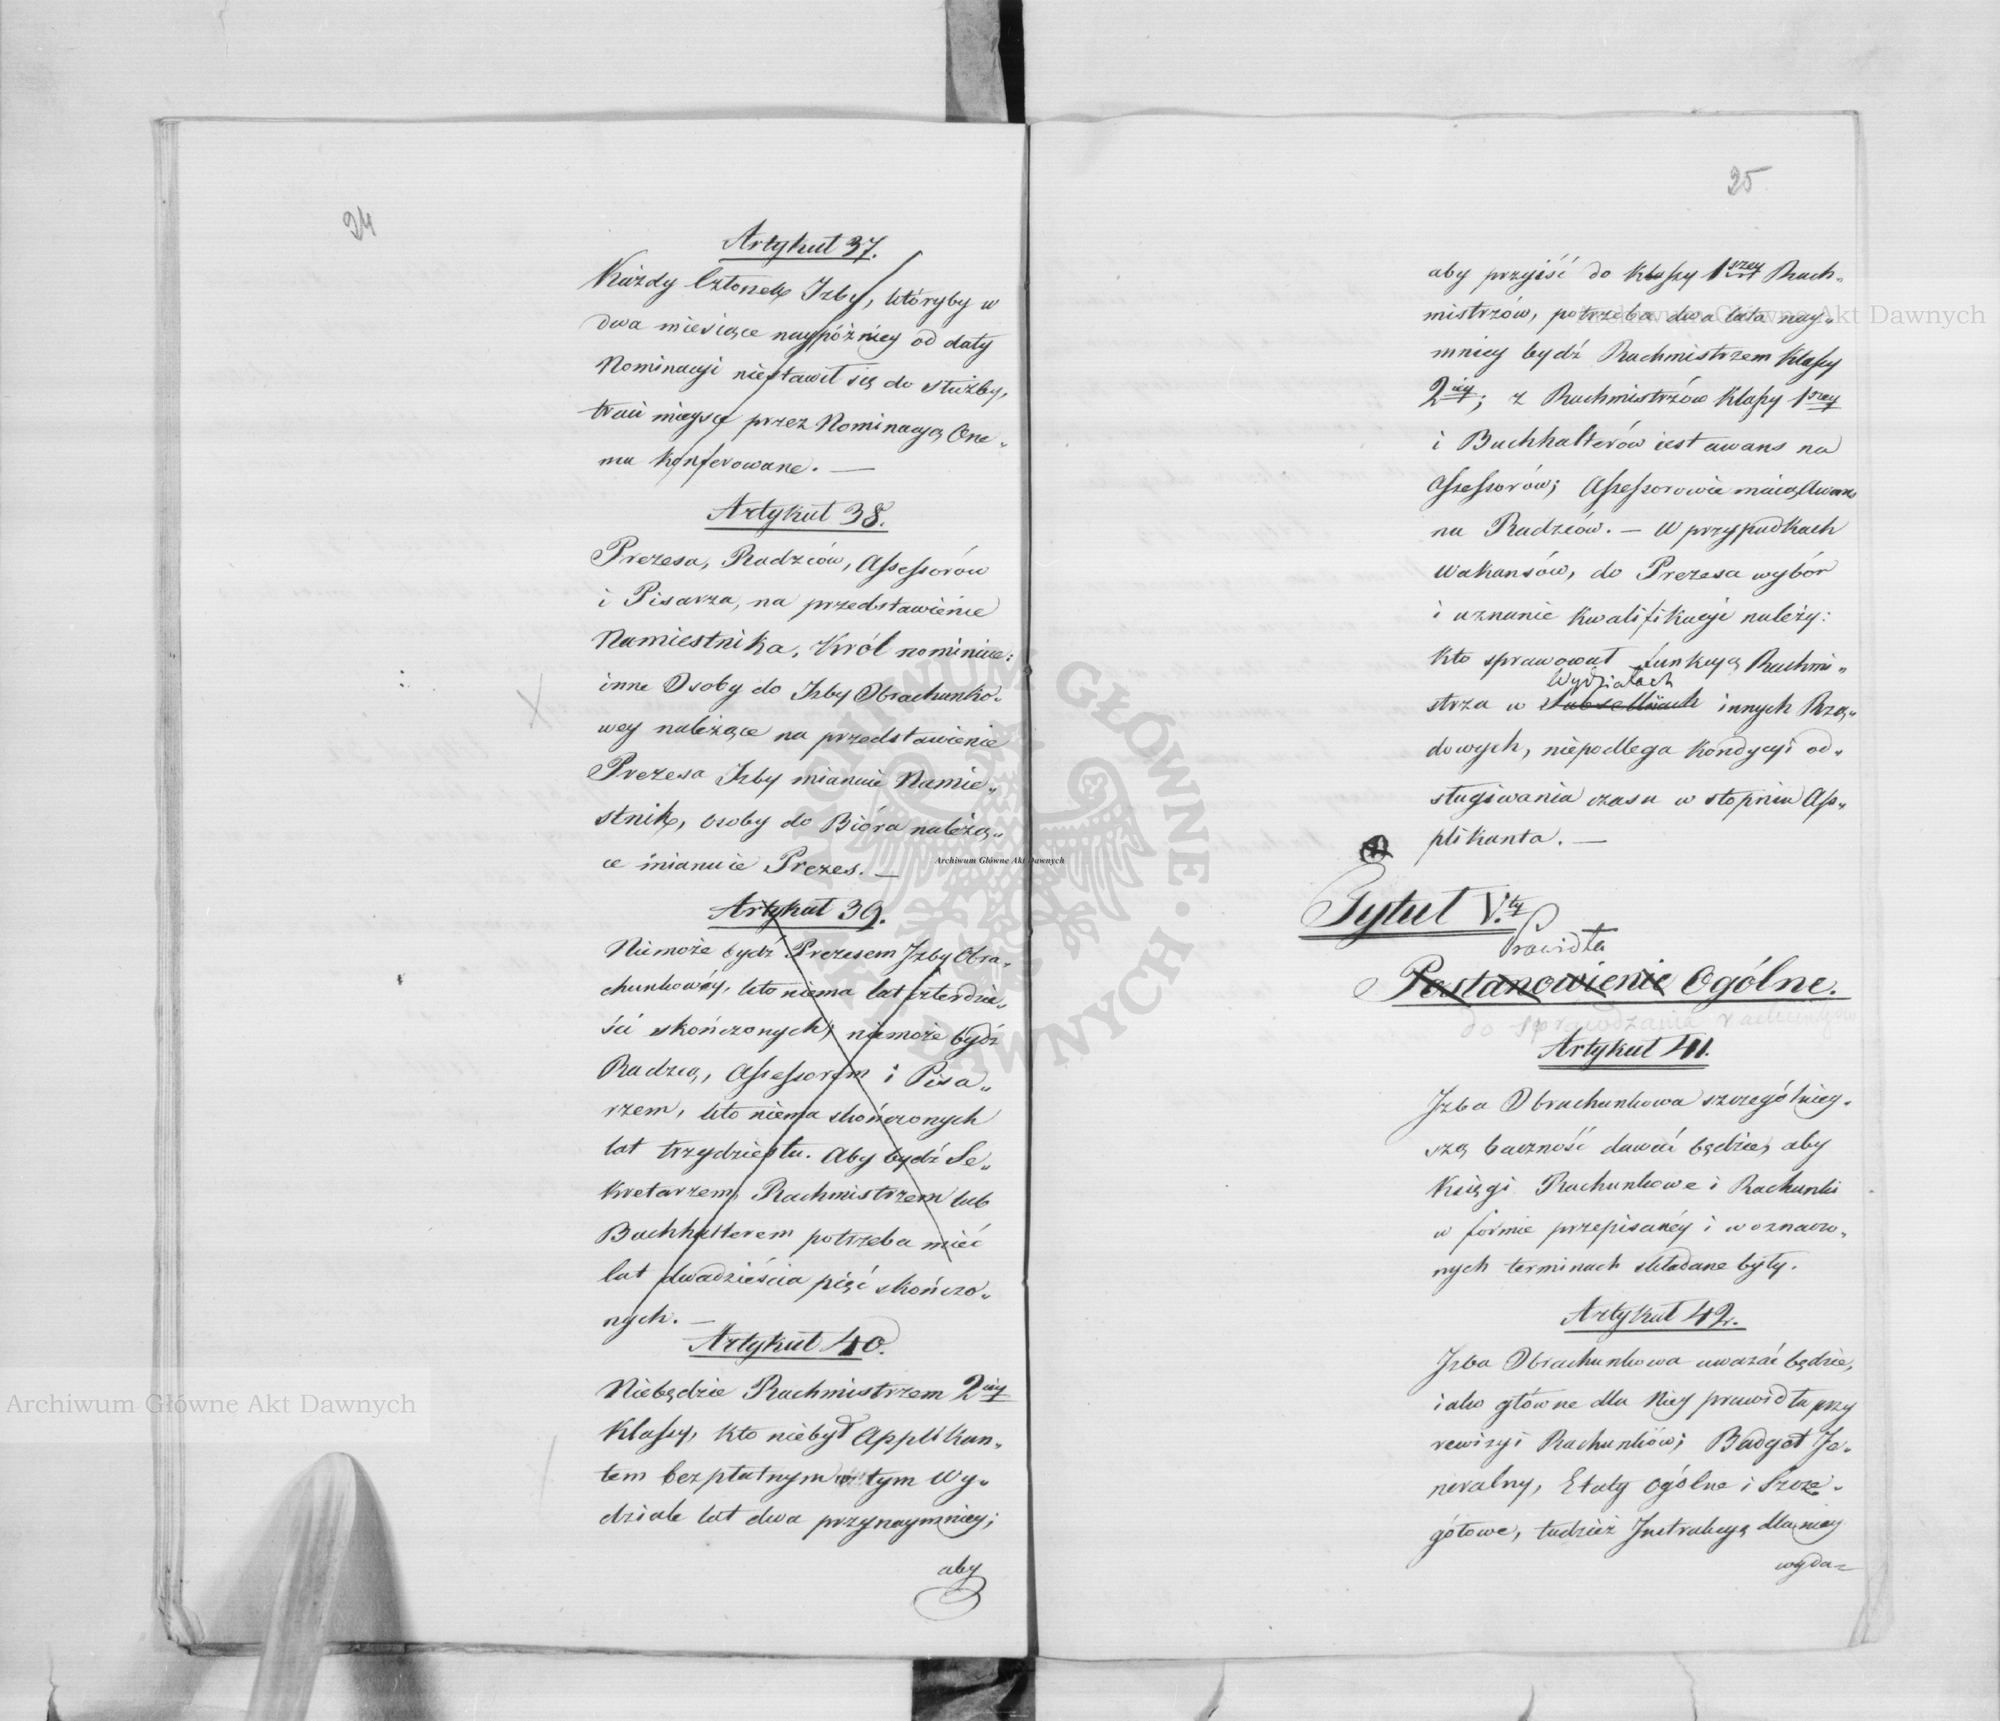 24
Artykuł 37.
Każdy Członek Izby, któryby w
dwa miesiące naypóźniey od daty
Nominacyi niestawił się do służby,
traci mieysce przez Nominacyą One„
mu konferowane. —
Artykuł 38.
Prezesa, Radzców, Assessorów
i Pisarza, na przedstawienie
Namiestnika, Król nominuie:
inne Osoby do Izby Obrachunko„
wey należące na przedstawienie
Prezesa Izby mianuie Namie„
stnik, osoby do Bióra należą„
ce mianuie Prezes. —
Artykuł 39.
Niemoże bydź Prezesem Izby Obra„
chunkowéy, kto niema lat czterdzie„
ści skończonych; niemoże bydź
Radzcą, Assessorem i Pisa„
rzem, kto niema skończonych
lat trzydziestu. Aby bydź Se„
kretarzem, Rachmistrzem lub
Buchhalterem potrzeba mieć
lat dwadzieścia pięć skończo„
nych. —
Artykuł 40.
Niebędzie Rachmistrzem 2iéy
Klassy, kto niebył Applikan„
tem bezpłatnym w tym Wy„
dziale lat dwa przynaymniey;
aby
25
aby przyiść do Klassy 1szey Rach„
mistrzów, potrzeba dwa lata nay„
mniey bydź Rachmistrzem Klassy
2iéy; z Rachmistrzów Klassy 1szey
i Buchhalterów iest awans na
Assessorów; Assessorowie maią Awans
na Radzców. — W przypadkach
Wakansów, do Prezesa wybór
i uznanie kwalifikacyi należy:
Kto sprawował funkcyą Rachmi„
Wydziałach
strza w Subselliach innych Rzą„
dowych, niepodlega Kondycyi od„
sługiwania czasu w stopniu Ap„
plikanta. —
Tytuł V.ty
Prawidła
Postanowienie Ogólne.
do sprawdzania rachunków
Artykuł 41.
Izba Obrachunkowa szczególniey„
szą baczność dawać będzie, aby
Księgi Rachunkowe i Rachunki
w formie przepisanéy i w oznaczo„
nych terminach składane były.
Artykuł 42.
Izba Obrachunkowa uważać będzie,
iako główne dla Niey prawidła przy
rewizyi Rachunków; Budget Je„
neralny, Etaty Ogólne i Szcze„
gółowe, tudzież Instrukcyą dla niey
wyda=
Archiwum Główne Akt Dawnych
Archiwum Główne Akt Dawnych
Archiwum Główne Akt Dawnych
ARCHIWUM GŁÓWNE AKT DAWNYCH